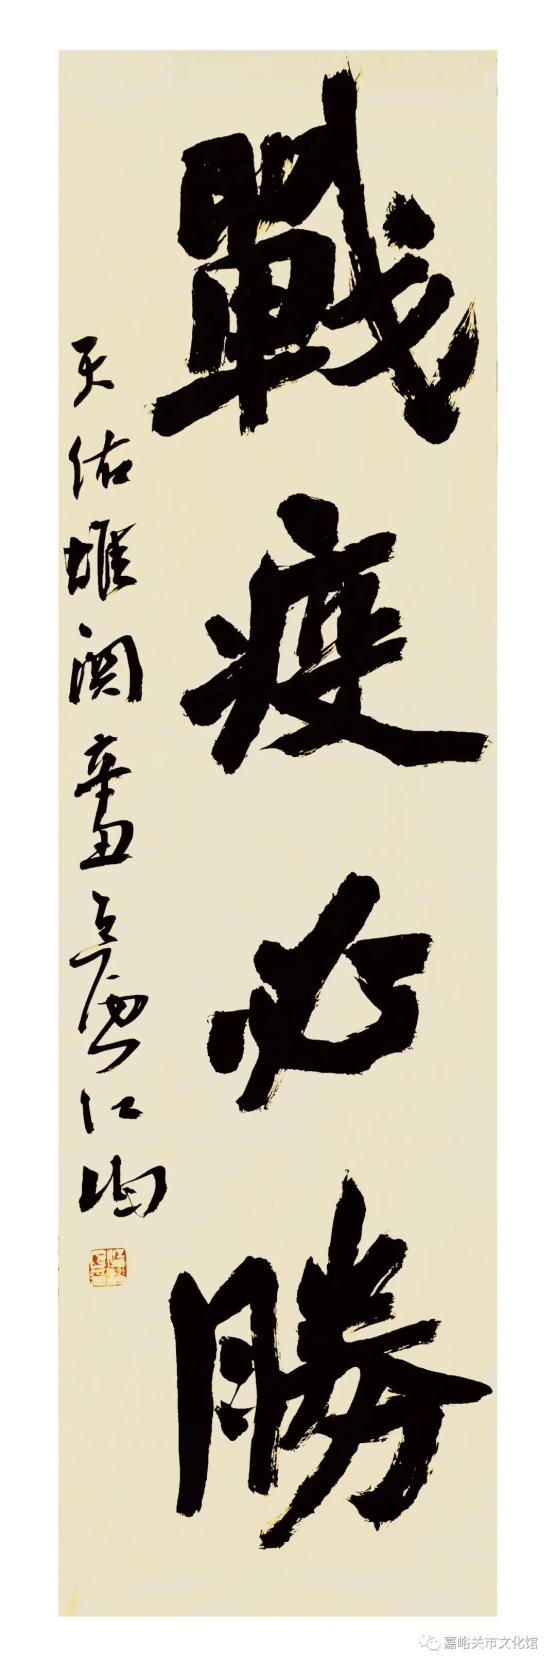 戰疫必勝
天佑雄關辛丑立夏江
嘉峪关市文化馆